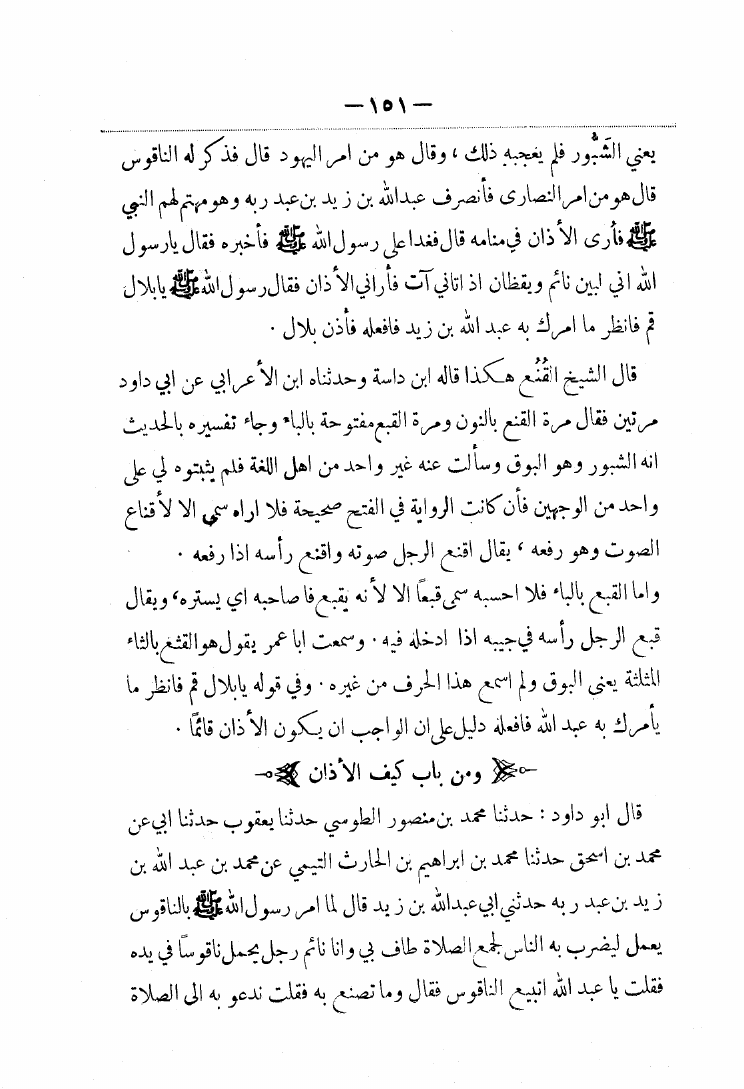 — ١٥١ —
يعني الشَّبُّور فلم يعجبه ذلك ، وقال هو من امر اليهود قال فذكر له الناقوس
قال هو من امر النصارى فأنصرف عبدالله بن زيد بن عبد ربه وهو مهتم لهم النبي
ﷺ فأرى الأذان في منامه قال فغدا على رسول الله ﷺ فأخبره فقال يارسول
الله اني لبين نائم ويقظان اذ اتاني آت فأراني الأذان فقال رسول الله ﷺ يابلال
قم فانظر ما امرك به عبد الله بن زيد فافعله فأذن بلال .
قال الشيخ القُنُع هكذا قاله ابن داسة وحدثناه ابن الأعرابي عن ابي داود
مرتين فقال مرة القنع بالنون ومرة القبع مفتوحة بالباء وجاء تفسيره بالحديث
انه الشبور وهو البوق وسألت عنه غير واحد من اهل اللغة فلم يثبتوه لي على
واحد من الوجهين فأن كانت الرواية في الفتح صحيحة فلا اراه سمي الا لأقناع
الصوت وهو رفعه ، يقال اقنع الرجل صوته واقنع رأسه اذا رفعه .
واما القبع بالباء فلا احسبه سمى قبعًا الا لأنه يقبع فا صاحبه اي يستره، ويقال
قبع الرجل رأسه في جيبه اذا ادخله فيه . وسمعت ابا عمر يقول هو القثع بالثاء
المثلثة يعني البوق ولم اسمع هذا الحرف من غيره . وفي قوله يابلال قم فانظر ما
يأمرك به عبد الله فافعله دليل على ان الواجب ان يكون الأذان قائمًا .
ومن باب كيف الأذان
قال ابو داود : حدثنا محمد بن منصور الطوسي حدثنا يعقوب حدثنا ابي عن
محمد بن اسحق حدثنا محمد بن ابراهيم بن الحارث التيمي عن محمد بن عبد الله بن
زيد بن عبد ربه حدثني ابي عبدالله بن زيد قال لما امر رسول الله ﷺ بالناقوس
يعمل ليضرب به الناس لجمع الصلاة طاف بي وانا نائم رجل يحمل ناقوسًا في يده
فقلت يا عبد الله اتبيع الناقوس فقال وما تصنع به فقلت ندعو به الى الصلاة